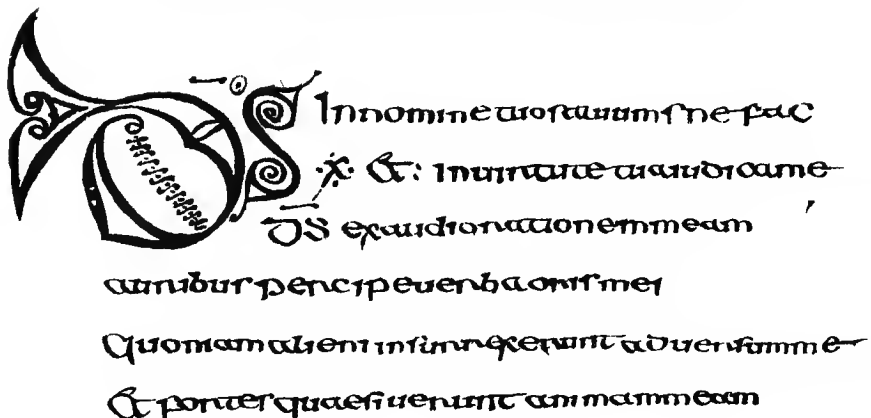 DS Innominetuosaluummefac
·x· &: inuirtutetuaiudicame
DS exaudiorationemmeam
auribuspercipeuerbaorismei
Quoniamalieniinsurrexeruntaduersumme
& fortesquaesiueruntanimammeam